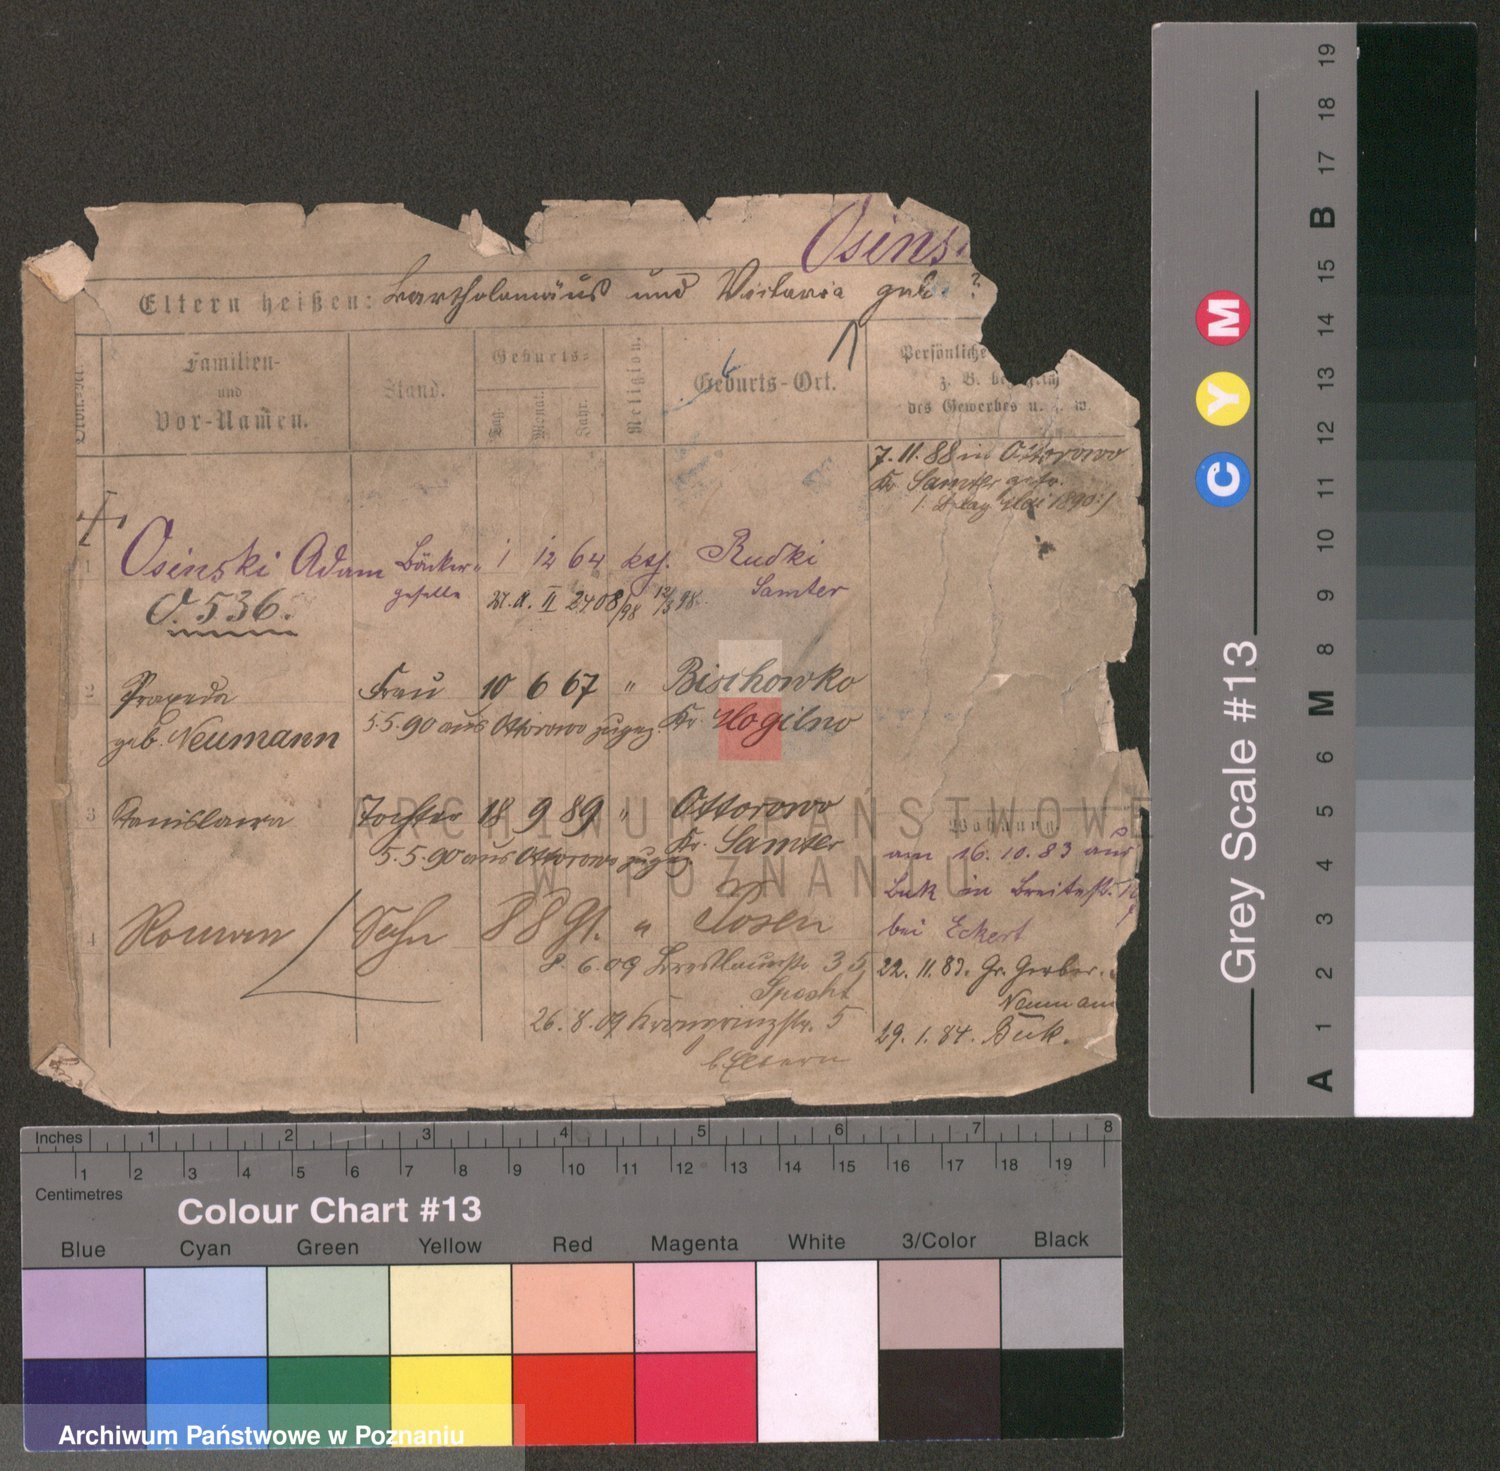 Osins
Eltern heißen: Bartholomäus und Victoria geb. ?
Lfde. Nr.
Familien-
und
Vor-Namen.
Stand.
Geburts-
Tag.
Monat.
Jahr.
Religion.
Geburts-Ort.
Persönliche
z. B. bezüglich
des Gewerbes u. s. w.
7. 11. 88 in Ottorowo
Kr Samter
1 Osinski Adam Bäcker- 1 12 64 kth. Rudki
geselle Samter
O. 536.
2 Praxeda Frau 10 6 67 " Bischowko
geb. Neumann 5.5.90 aus Ottorowo zugez. Kr. Mogilno
3 Stanislawa Tochter 18 9 89 " Ottorowo
5.5.90 aus Ottorowo zugez. Kr. Samter
4 Roman Sohn 8 8 91. " Posen
8. 6. 09 Breslauerstr. 35
Specht
26. 8. 09 Kronprinzstr. 5
b. Eltern
Wohnung.
am 16. 10. 83 aus
Buk in Breitestr.
bei Eckert
22. 11. 83. Gr. Gerber.
Neumann
29. 1. 84. Buk.
ARCHIWUM PAŃSTWOWE
W POZNANIU
Grey Scale #13
C Y M
A 1 2 3 4 5 6 M 8 9 10 11 12 13 14 15 B 17 18 19
Inches 1 2 3 4 5 6 7 8
1 2 3 4 5 6 7 8 9 10 11 12 13 14 15 16 17 18 19
Centimetres
Colour Chart #13
Blue Cyan Green Yellow Red Magenta White 3/Color Black
Archiwum Państwowe w Poznaniu